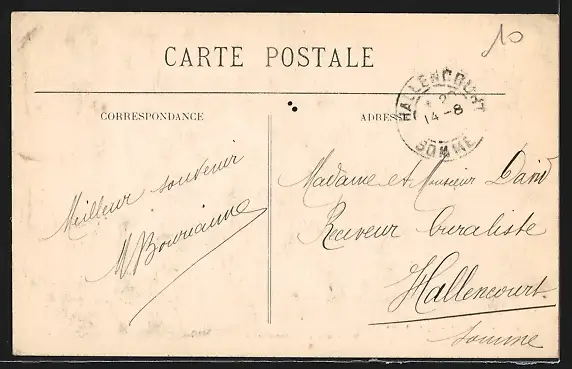 CARTE POSTALE
CORRESPONDANCE
ADRESSE
HALLENCOURT
14-8
SOMME
10
Meilleur souvenir
Madame et Monsieur David
Receveur buraliste
Hallencourt
Somme